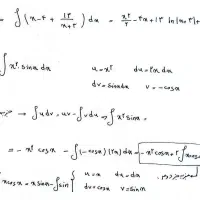 = ∫(x-۴ + ۱۳/(x+۳)) dx = x²/۲ - ۴x + ۱۳ ln|x+۳| +
∫ x² sinx dx    u = x²    du = ۲x dx
dv = sinx dx    v = -cosx
→ ∫u dv = uv - ∫v du → ∫x² sinx =
= -x² cosx - ∫(-cosx)(۲x) dx = -x² cosx + ۲∫x cosx
x cosx = x sinx - ∫sin    u = x    du = dx
dv = cosx    v = sinx